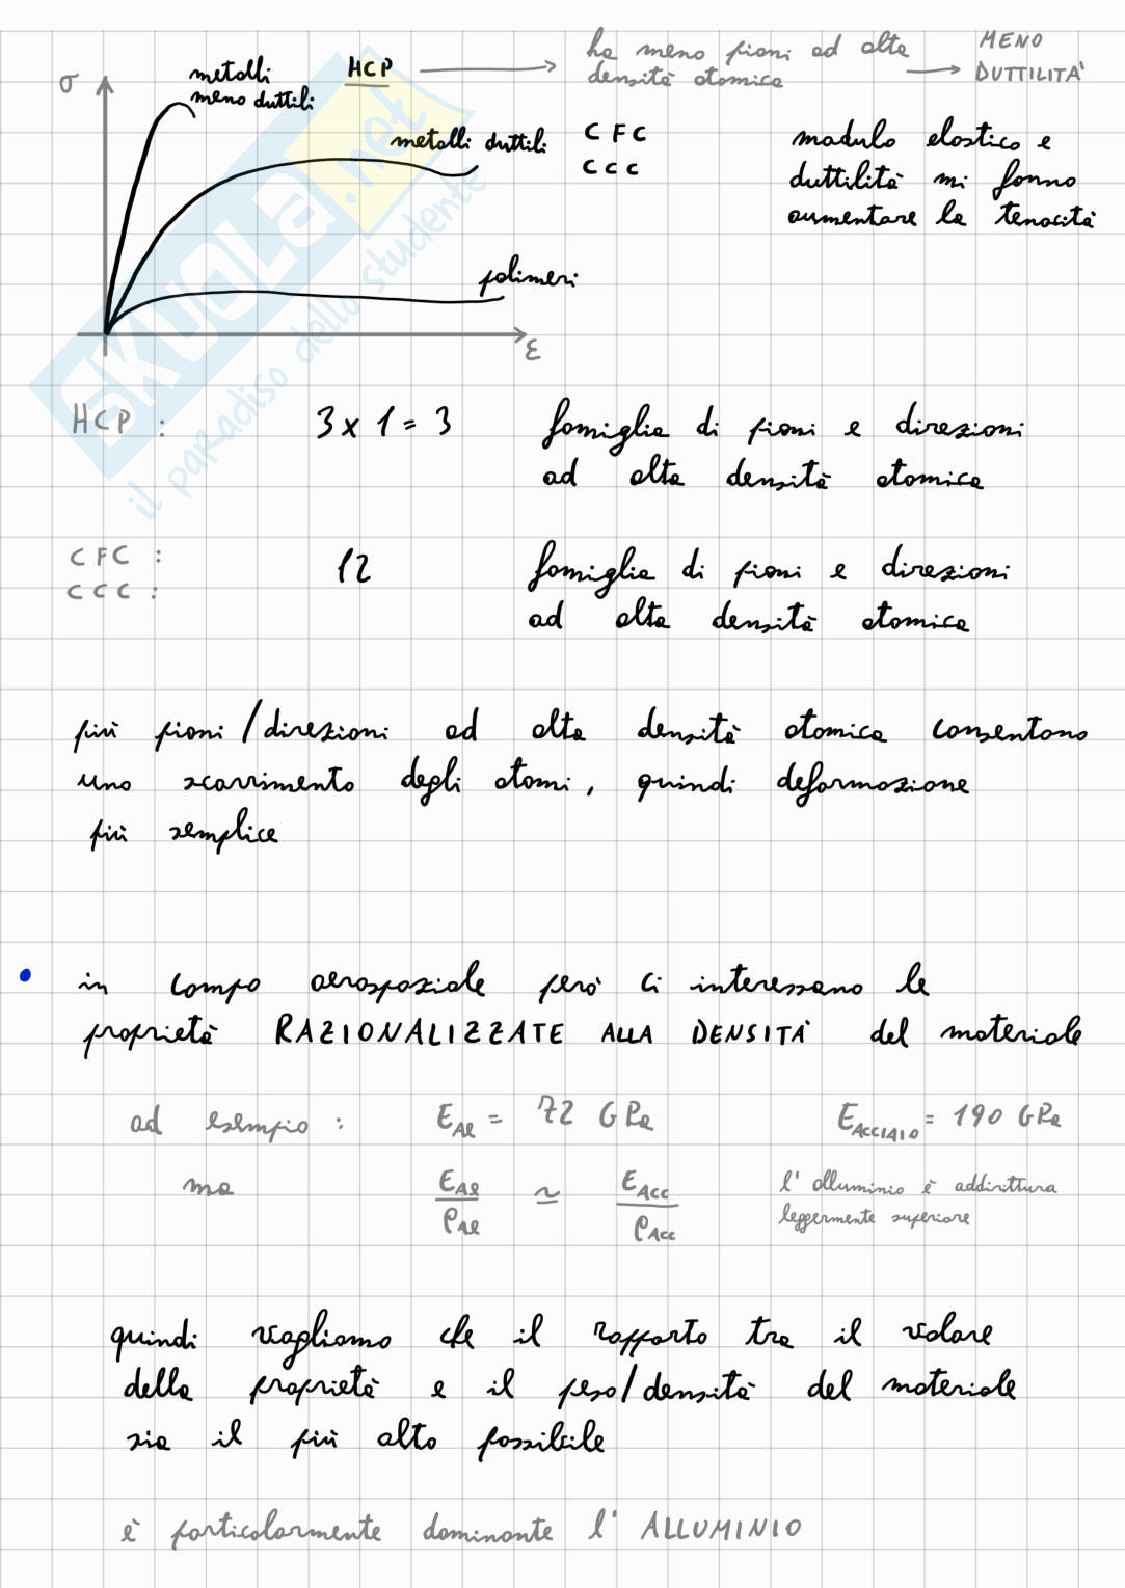 σ
metalli
meno duttili
HCP
ha meno piani ad alta
densità atomica
MENO
DUTTILITA'
metalli duttili
CFC
CCC
modulo elastico e
duttilità mi fanno
aumentare la tenacità
polimeri
ε
SKUOLA.net
il paradiso dello studente
HCP :
3 x 1 = 3
famiglia di piani e direzioni
ad alta densità atomica
CFC :
CCC :
12
famiglia di piani e direzioni
ad alta densità atomica
più piani / direzioni ad alta densità atomica consentono
uno scorrimento degli atomi, quindi deformazione
più semplice
• in campo aerospaziale però ci interessano le
proprietà RAZIONALIZZATE ALLA DENSITÀ del materiale
ad esempio : E_Al = 72 GPa E_ACCIAIO = 190 GPa
ma E_Al / ρ_Al ≃ E_Acc / ρ_Acc
l'alluminio è addirittura
leggermente superiore
quindi vogliamo che il rapporto tra il valore
della proprietà e il peso/densità del materiale
sia il più alto possibile
è particolarmente dominante l'ALLUMINIO